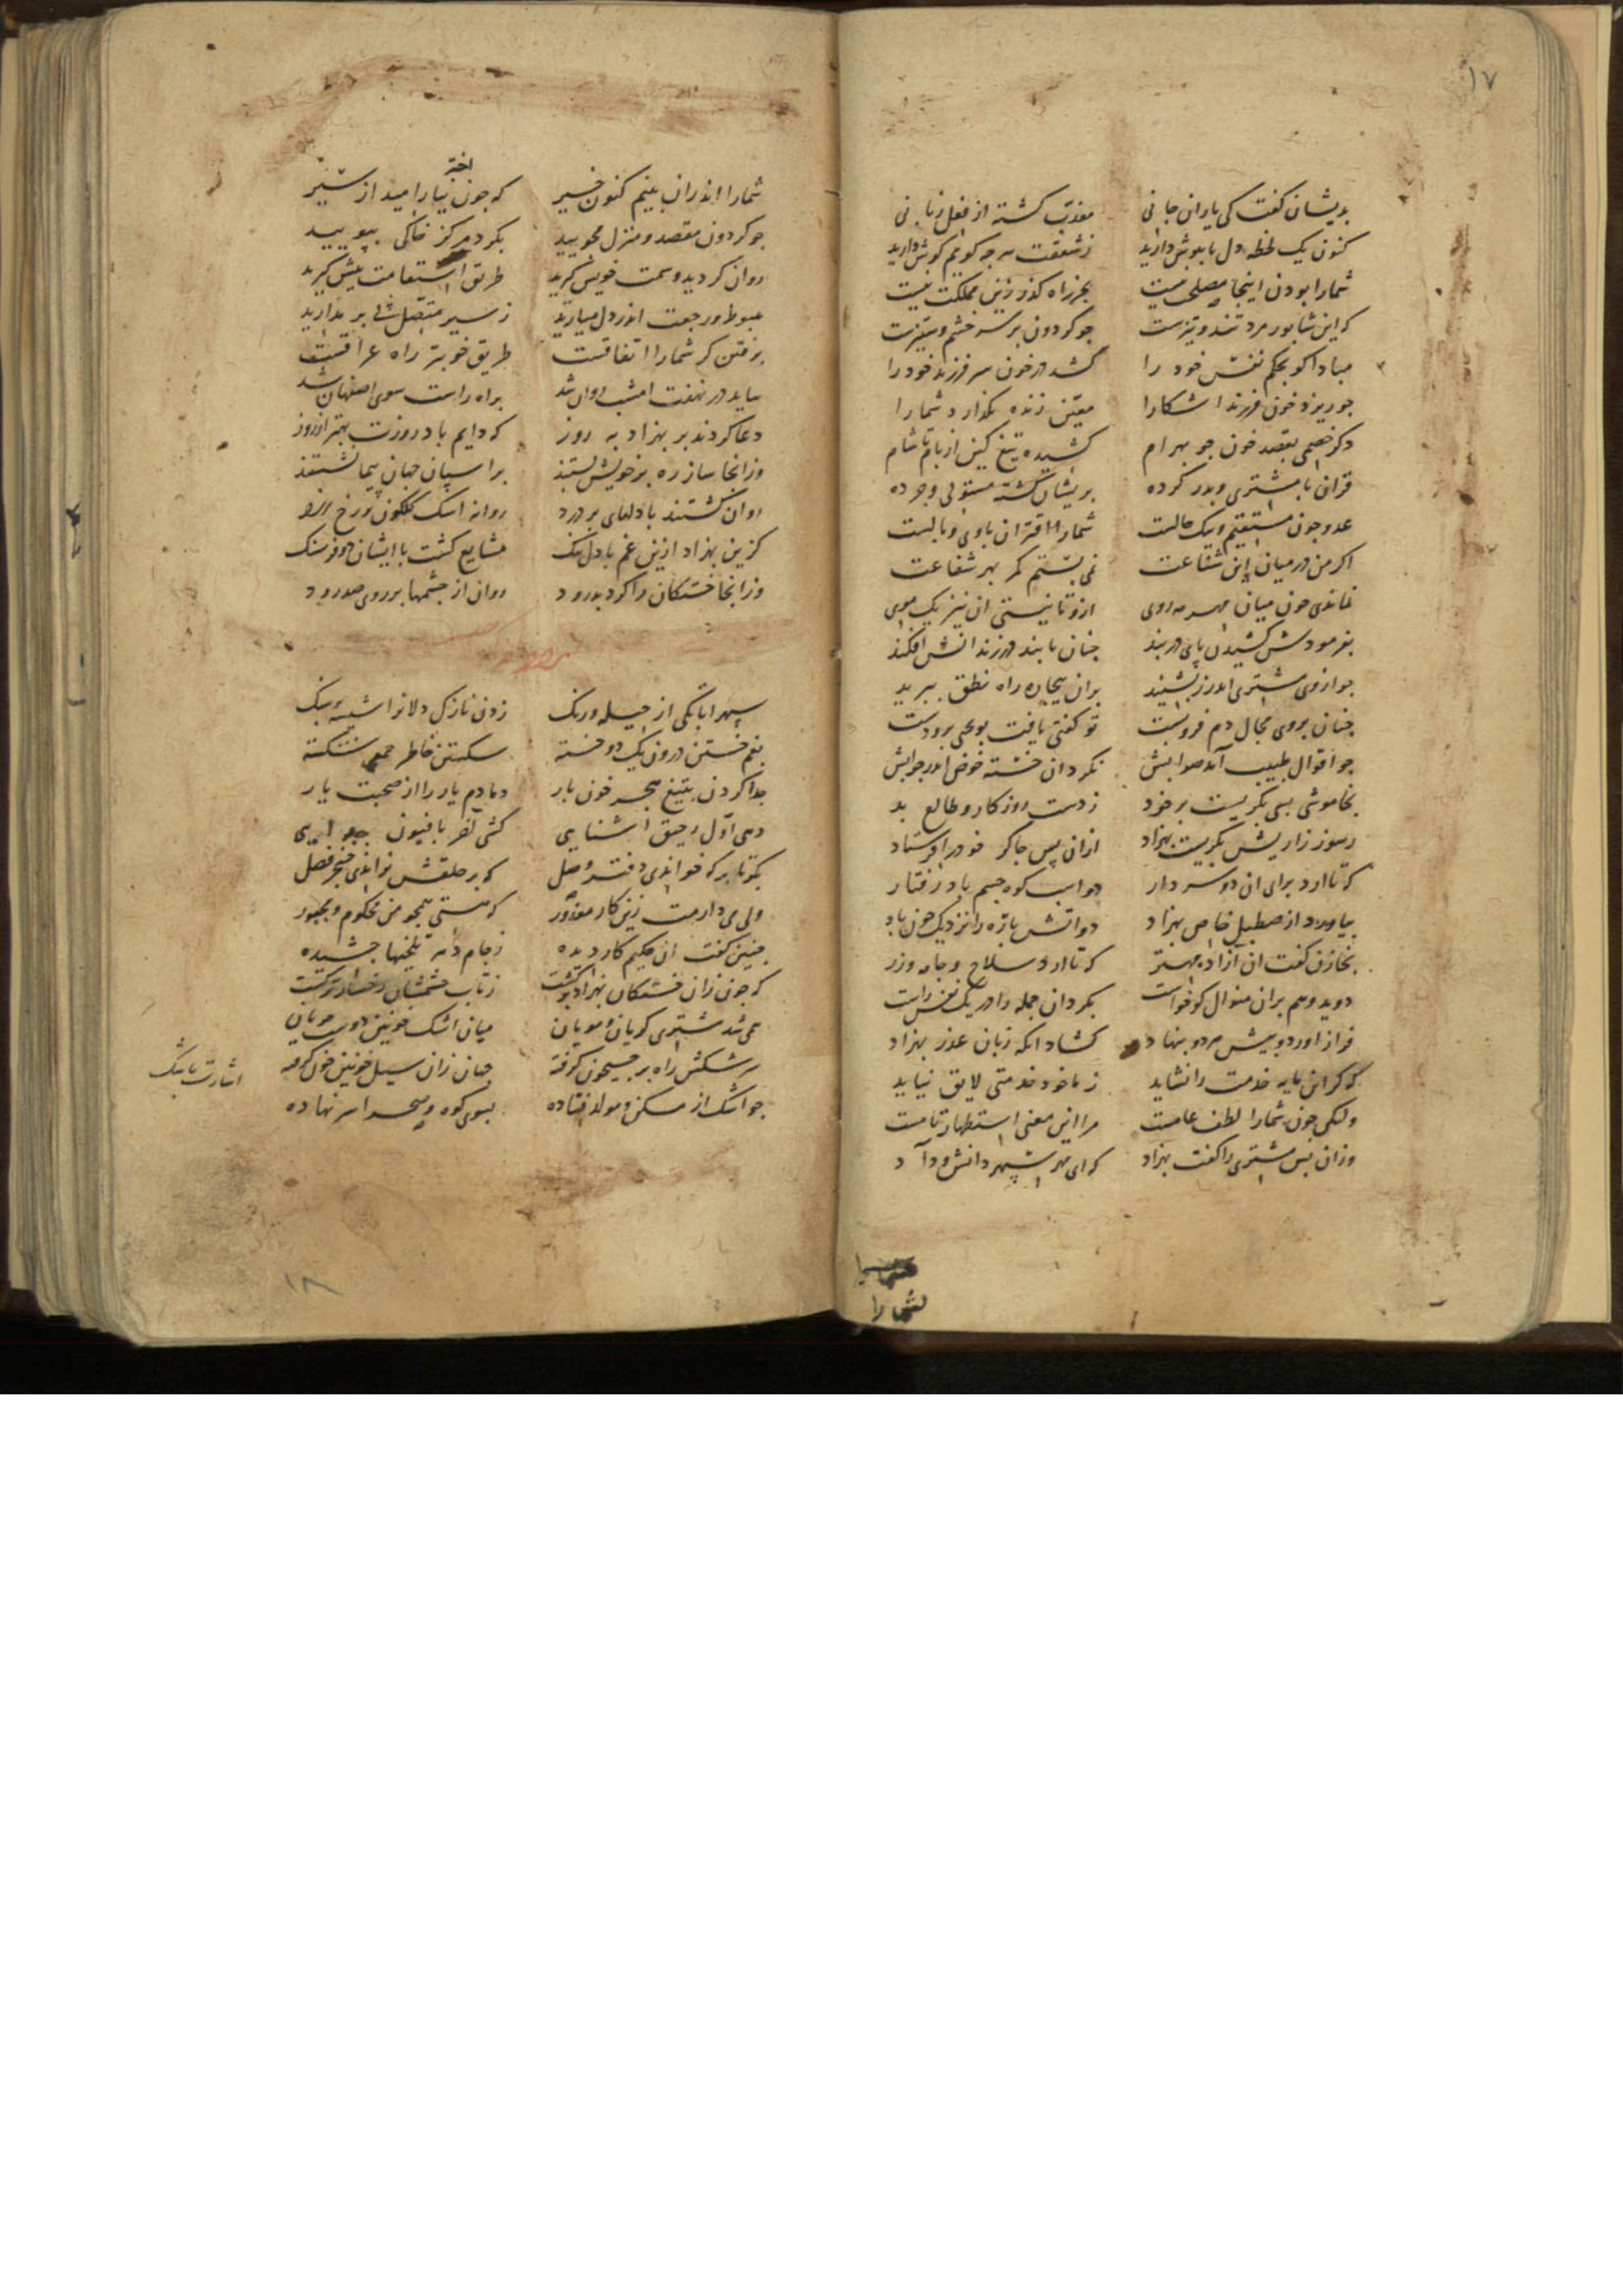 ١٧
بدیشان کفت کی یاران جانی معذب کشته از فعل زبانی
کنون یک لحظه دل با هوش دارید ز شفقت هرجه کویم کوش دارید
شمارا بودن اینجا مصلحت نیست بجز راه کذر زین مملکت نیست
که این شابور مرد تند و تیزست جو کردون بر سر خشم و ستیزست
مبادا کو بحکم نفس خود را کشد در خون سر فرزند خود را
جو ریزد خون فرزند اشکارا معین زنده نکذارد شمارا
دکر خصمی بقصد خون جو بهرام کشیده تیغ کین از بام تا شام
قران با مشتری و بدر کرده بریشان کشته مستولی و جرده
عدو جون مستقیم و نیک حالست شمارا اقتران باوی وبالست
اکر من در میان این شفاعت نمی بستم کمر بهر شفاعت
نماندی خون میان مهر مه روی ازو تا نیستی ان نیز یک موی
بفرمودش کشیدن پای در بند جنان با بند فرزند انش افکند
جو ازوی مشتری اندرز بشنید بران بیجاره راه نطق ببرید
جنان بروی مجال دم فروبست تو کفتی یافت بویحیی برو دست
جو اقوال طبیب آمد صوابش نکرد ان خسته خوض اندر جوابش
بخاموشی بسی بکریست بر خود ز دست روزکار و طالع بد
ز سوز زاریش بکریست بهزاد ازان پس جاکر خودرا فرستاد
که تا ارد برای ان دو سردار دو اسب کوه جسم باد رفتار
بیاورد از صطبل خاص بهزاد دو اتش باره را نزدیک جون باد
بخازن کفت ان آزاده مهتر که تا ارد سلاح و جامه وزر
دوید و هم بران منوال کو خواست بکرد ان جمله را در یک نفس راست
فراز اورد و بیش هر دو بنهاد کشاد انکه زبان عذر بهزاد
که کر این مایه خدمت را نشاید ز ما خود خدمتی لایق نیاید
ولیکی جون شمارا لطف عامست مرا این معنی استظهار تامست
وزان بس مشتری را کفت بهزاد که ای مهر سپهر دانش و داد
شمارا
شمارا اندران بینم کنون خیر که جون اختر نیارامید از سیر
جو کردون مقصد و منزل مجویید بکرد مرکز خاکی بپویید
روان کردید و سمت خویش کیرید طریق استقامت بیش کیرید
هبوط و رجعت اندر دل میارید ز سیر متصل شی بر مدارید
برفتن کر شمارا اتفاقست طریق خوبتر راه عراقست
بباید در نهفت امشب روان شد براه راست سوی اصفهان شد
دعا کردند بر بهزاد به روز که دایم باد روزت بهتر از روز
وزانجا ساز ره بر خویش بستند بر اسپان جهان پیما نشستند
روان کشتند با دلهای بر درد روانه اشک کلکون بر رخ زرد
کزین بهزاد ازین غم با دل تنک مشایع کشت با ایشان دو فرسنک
وزانجا خستکان را کرد بدرود روان از جشمها بر روی صد رود
سپهرا تا بکی از حیله و رنک زدن نازک دلانرا شیشه بر سنک
بغم خستن درون یک دو خسته شکستن خاطر جمعی شکسته
جدا کردن بتیغ هجر خون بار دمادم یار را از صحبت یار
دهی اول رحیق اشنایی کشی اخر بافیون جدایی
بکو تا بر که خواندی دفتر وصل که بر حلقش نراندی خنجر فصل
ولی می دارمت زین کار معذور که هستی همجو من محکوم و مجبور
جنین کفت ان حکیم کار دیده ز جام دهر تلخیها جشیده
که جون زان خستکان بهزاد برکشت ز تاب خشمشان رخساره تر کشت
همی شد مشتری کریان و مویان میان اشک خونین دوست جویان
سرشکش راه بر جیحون کرفته جهان زان سیل خونین خون کرفته
جو اشک از مسکن و مولد فتاده بسوی کوه و صحرا سر نهاده
اشارت باشک
١٨